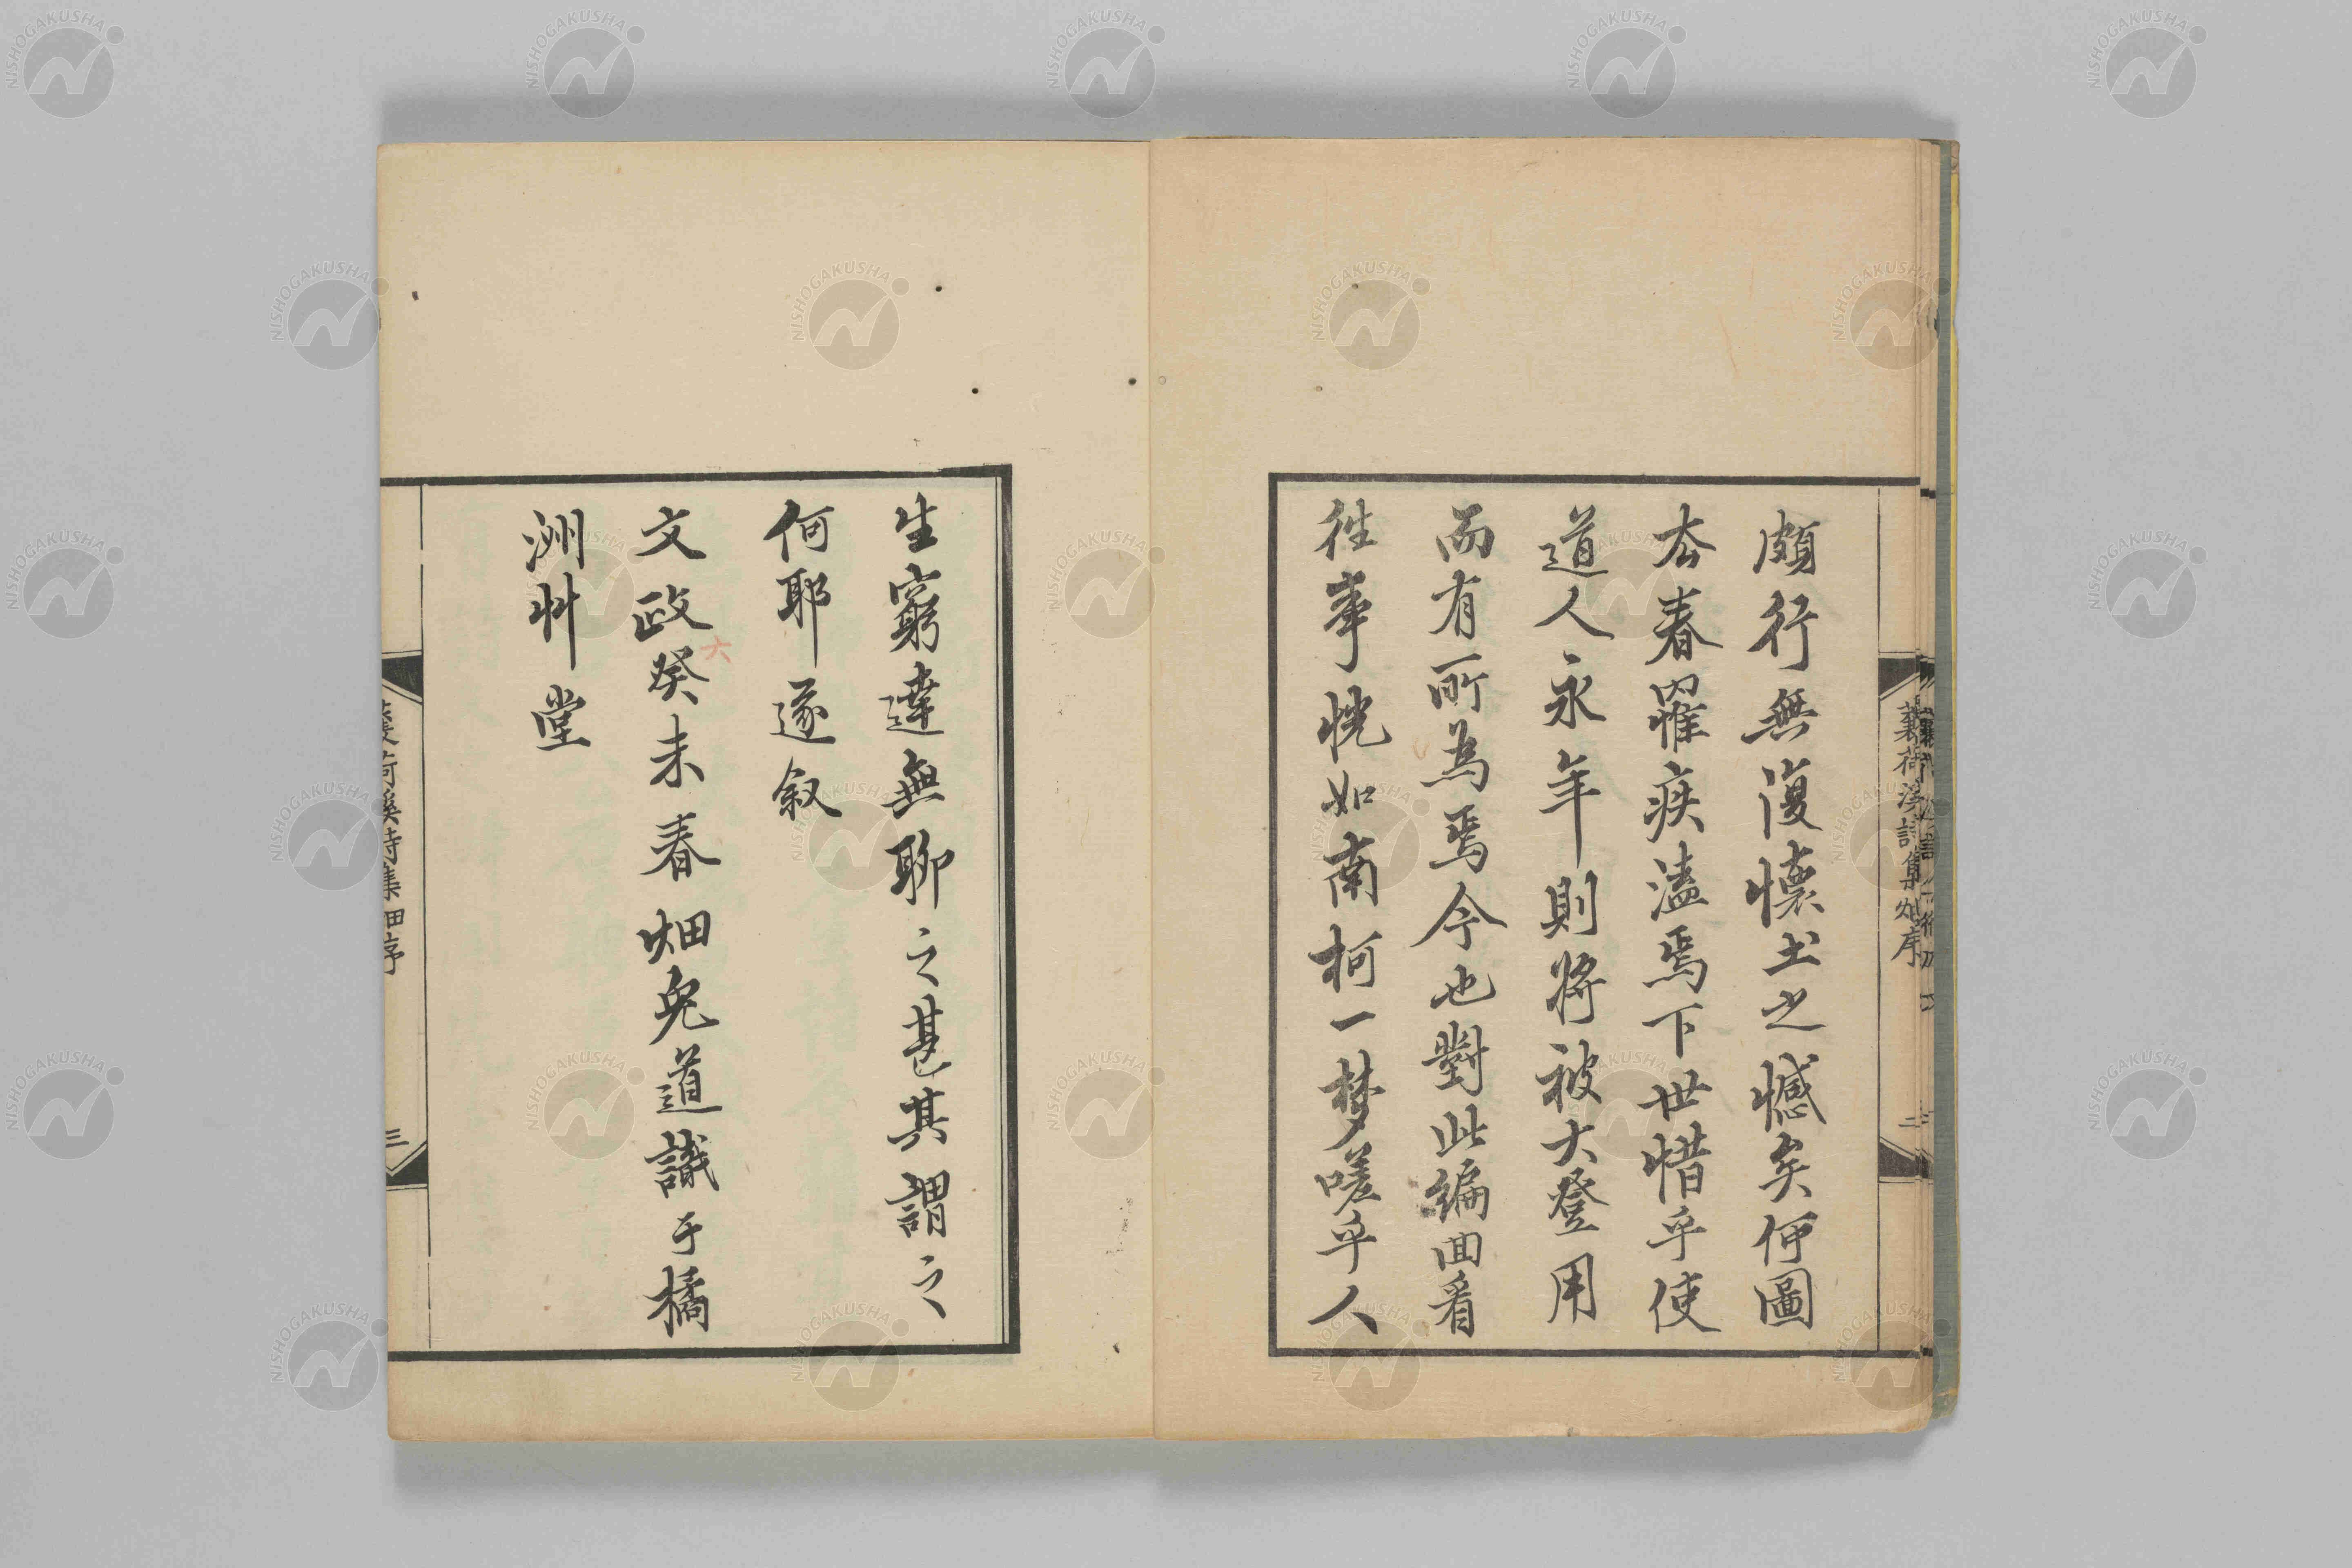 頗行無復懷土之憾矣何圖
夲春罹疾溘焉下世惜乎使
道人永年則將被大登用
而有所為焉今也對此編回看
徃事恍如南柯一梦嗟乎人
生窮達無聊之甚其謂之
何耶遂叙
文政癸未春畑兔道識于橘
洲艸堂
六
蘘荷溪詩集畑序
二
荷溪詩集畑序
三
NISHOGAKUSHA